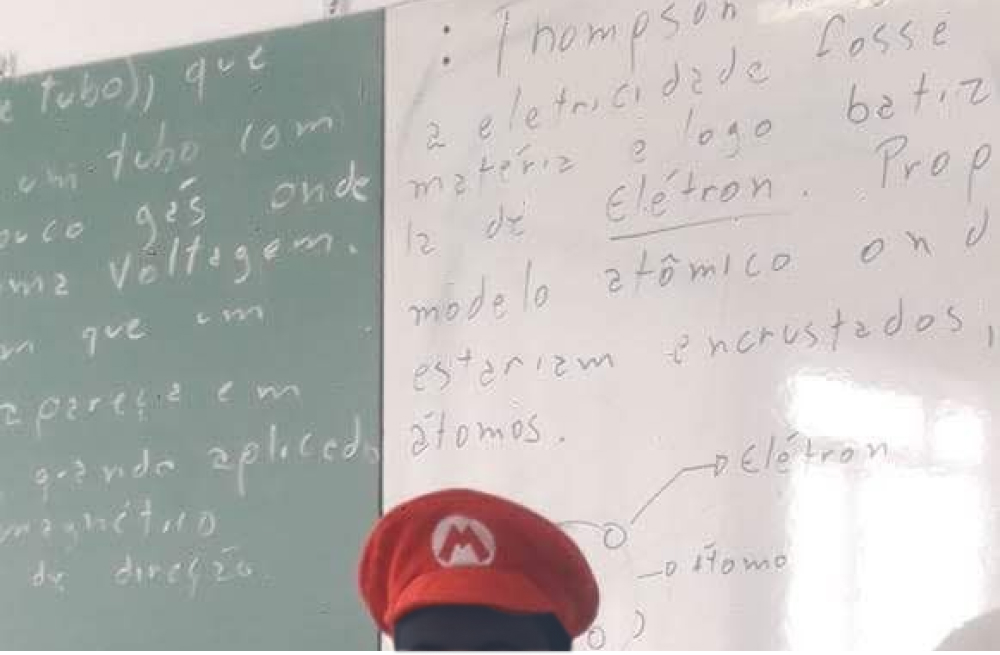 tubo), que
um tubo com
gás onde
uma voltagem.
que um
apareça em
quando aplicado
magnético
de direção
: Thompson
a eletricidade fosse
matéria e logo batiz
la de Elétron. Prop
modelo atômico ond
estariam encrustados,
átomos.
Elétron
átomo
M